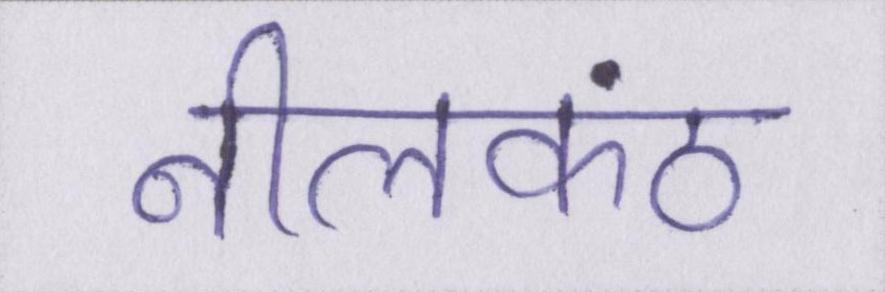 नीलकंठ